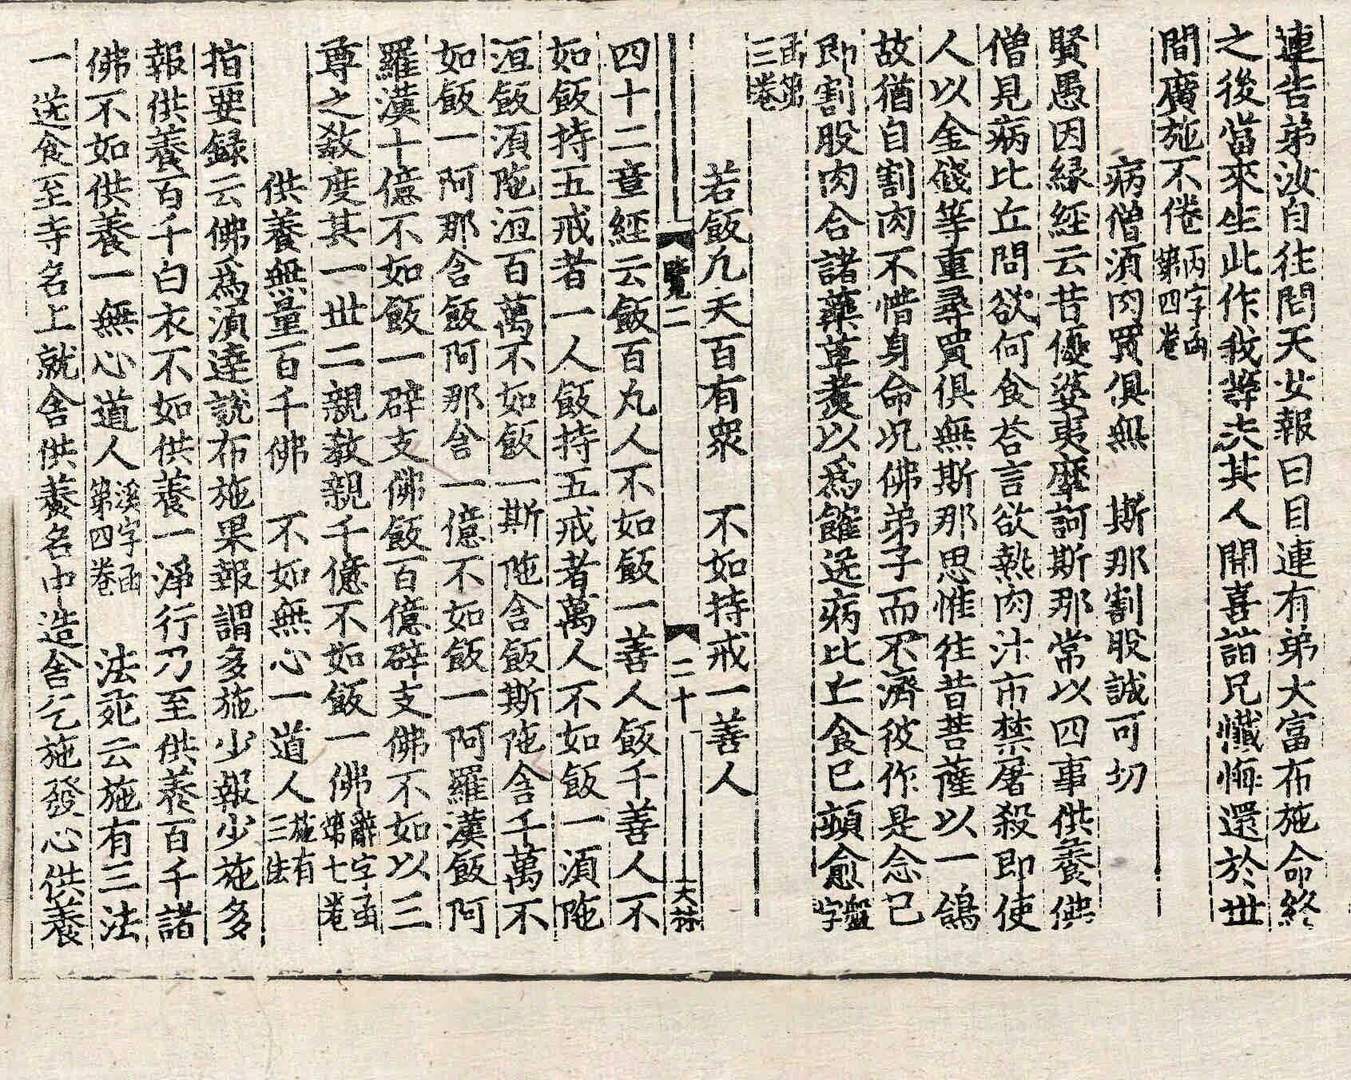 連告弟汝自往問天女報曰目連有弟大富布施命終
之後當來生此作我等夫其人聞喜詣兄懺悔還於世
間廣施不倦丙字函第四卷
病僧須肉買俱無　斯那割股誠可切
賢愚因緣經云昔優婆夷摩訶斯那常以四事供養供
僧見病比丘問欲何食荅言欲熱肉汁市禁屠殺即使
人以金錢等重尋買俱無斯那思惟往昔菩薩以一鴿
故猶自割肉不惜身命况佛弟子而不濟彼作是念已
即割股肉合諸藥草煑以爲饊送病比丘食已頓愈盤字
函第三卷
若飯凢夫百有衆　不如持戒一善人
覽二　二十　大苾
四十二章經云飯百凢人不如飯一善人飯千善人不
如飯持五戒者一人飯持五戒者萬人不如飯一須陁
洹飯須陁洹百萬不如飯一斯陁含飯斯陁含千萬不
如飯一阿那含飯阿那含一億不如飯一阿羅漢飯阿
羅漢十億不如飯一辟支佛飯百億辟支佛不如以三
尊之敎度其一世二親敎親千億不如飯一佛辭字函第七卷
供養無量百千佛　不如無心一道人施有三法
指要録云佛爲須達說布施果報謂多施少報少施多
報供養百千白衣不如供養一淨行乃至供養百千諸
佛不如供養一無心道人溪字函第四卷　法苑云施有三法
一送食至寺名上就舍供養名中造舍乞施發心供養